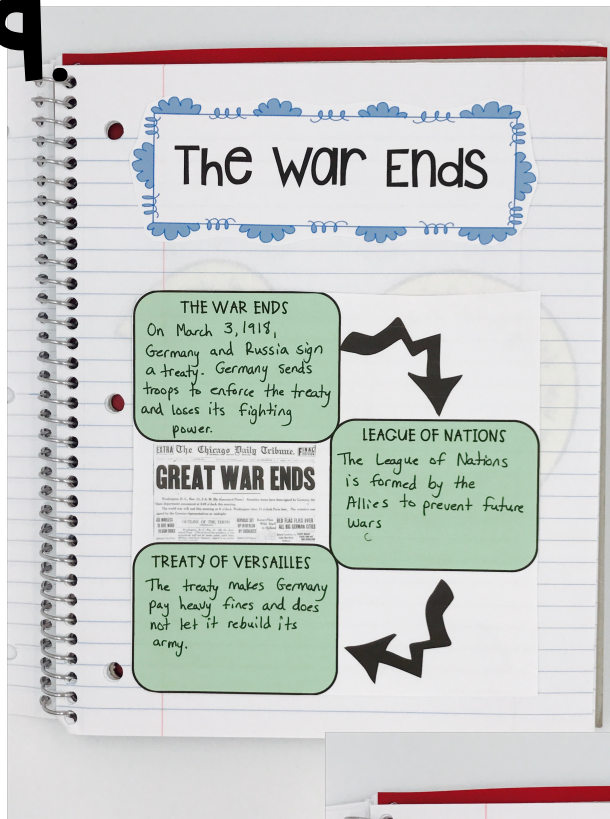 9.
The War Ends
THE WAR ENDS
On March 3, 1918,
Germany and Russia sign
a treaty. Germany sends
troops to enforce the treaty
and loses its fighting
power.
EXTRA The Chicago Daily Tribune. FINAL
GREAT WAR ENDS
LEAGUE OF NATIONS
The League of Nations
is formed by the
Allies to prevent future
wars
TREATY OF VERSAILLES
The treaty makes Germany
pay heavy fines and does
not let it rebuild its
army.